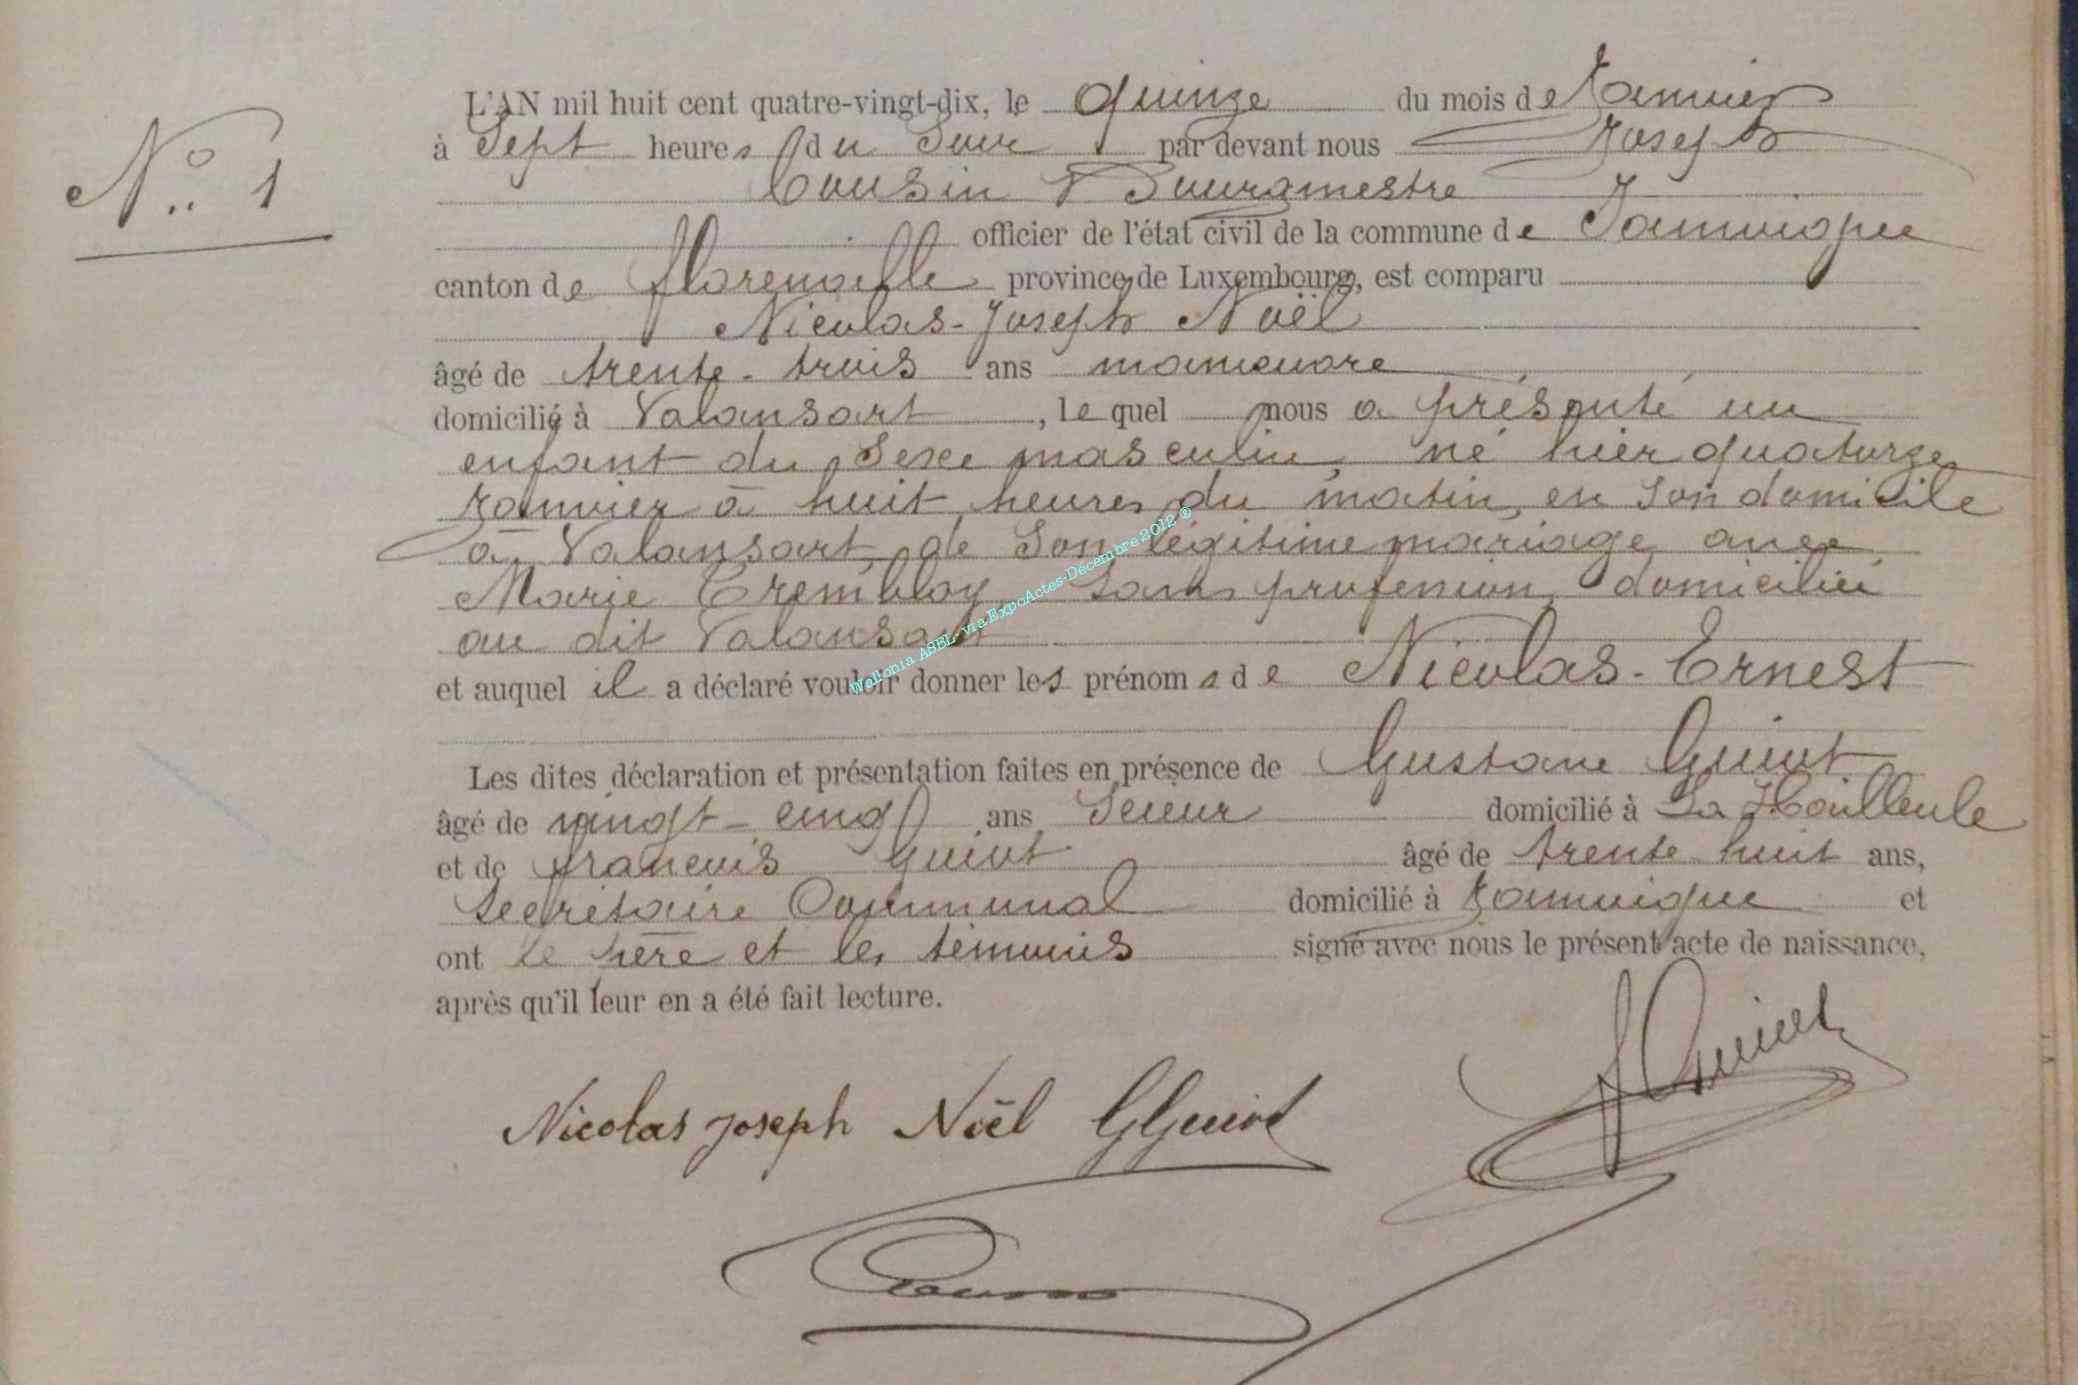 N° 1
L'AN mil huit cent quatre-vingt-dix, le quinze du mois de Janvier
à Sept heures du Soir par devant nous Joseph
Cousin Bourgmestre
officier de l'état civil de la commune de Jamoigne
canton de florenville province de Luxembourg, est comparu
Nicolas-Joseph Noël
âgé de trente-trois ans manœuvre
domicilié à Valansart, lequel nous a présenté un
enfant du Sexe masculin, né hier quatorze
Janvier à huit heures du matin, en Son domicile
à Valansart, de Son légitime mariage avec
Marie Tremblay, Sans profession, domiciliée
au dit Valansart
et auquel il a déclaré vouloir donner les prénoms de Nicolas-Ernest
Les dites déclaration et présentation faites en présence de Gustave Guiot
âgé de vingt-cinq ans Scieur domicilié à La Hailleule
et de françois Guiot âgé de trente huit ans,
Secrétaire Communal domicilié à Jamoigne et
ont le père et les témoins signé avec nous le présent acte de naissance,
après qu'il leur en a été fait lecture.
Nicolas Joseph Noël GGuiot f Guiot
Cousin
Wallonia ASBL- via ExpoActes-Décembre 2012 ®